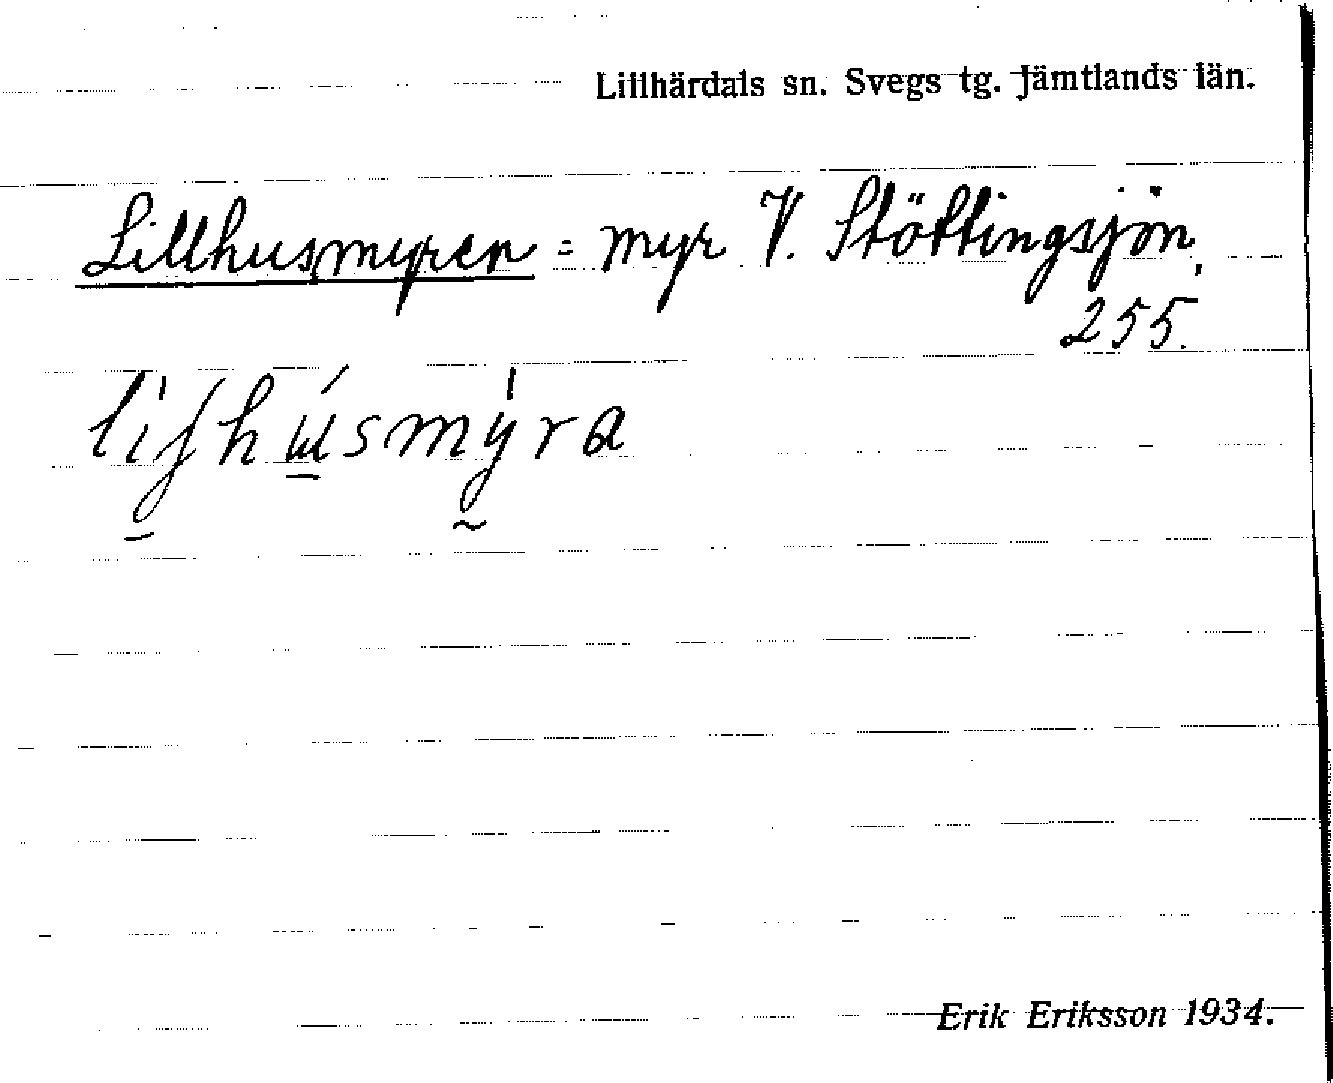 Lillhärdals sn. Svegs tg. Jämtlands län.
Lillhusmyren = myr V. Stöttingsjön,
255.
Erik Eriksson 1934.